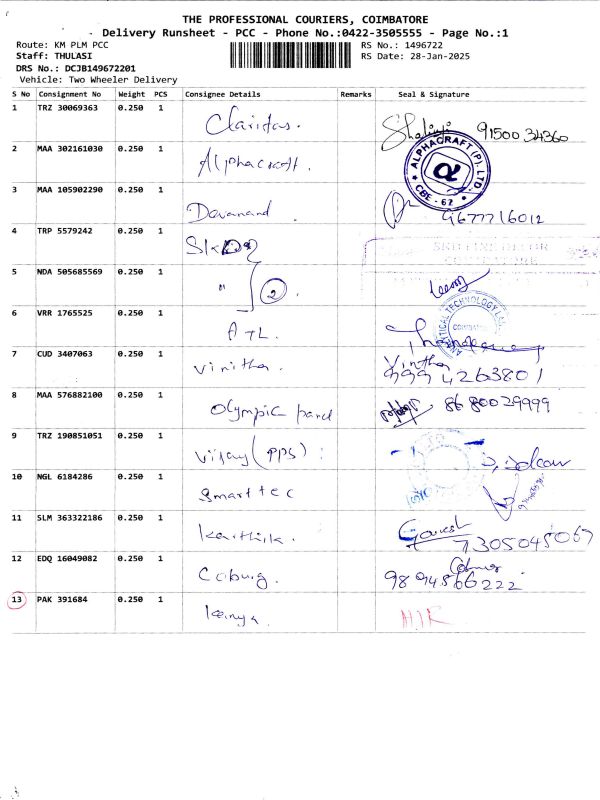 THE PROFESSIONAL COURIERS, COIMBATORE
Delivery Runsheet - PCC - Phone No.:0422-3505555 - Page No.:1
Route: KM PLM PCC
Staff: THULASI
DRS No.: DCJB149672201
Vehicle: Two Wheeler Delivery
RS No.: 1496722
RS Date: 28-Jan-2025
S No Consignment No Weight PCS Consignee Details Remarks Seal & Signature
1 TRZ 30069363 0.250 1 Claridas. 9150034360
2 MAA 302161030 0.250 1 Alphacraft. ALPHACRAFT (P) LTD. CBE - 62
3 MAA 105902290 0.250 1 Devanand 9677716012
4 TRP 5579242 0.250 1
5 NDA 505685569 0.250 1 " 2
6 VRR 1765525 0.250 1 ATL.
7 CUD 3407063 0.250 1 Vinitha. Vinitha
9994263801
8 MAA 576882100 0.250 1 Olympic panel 8680029999
9 TRZ 190851051 0.250 1 Vijay (PPS)
10 NGL 6184286 0.250 1 Smart tec
11 SLM 363322186 0.250 1 Karthik. Ganesh
7305045067
12 EDQ 16049082 0.250 1 Coburg. 9894566222
13 PAK 391684 0.250 1